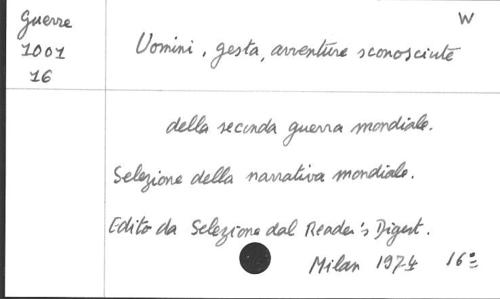 Guerre
1001
16
W
Uomini, gesta, avventure sconosciute
della seconda guerra mondiale.
Selezione della narrativa mondiale.
Edito da Selezione dal Reader's Digest.
Milan 1974 16º